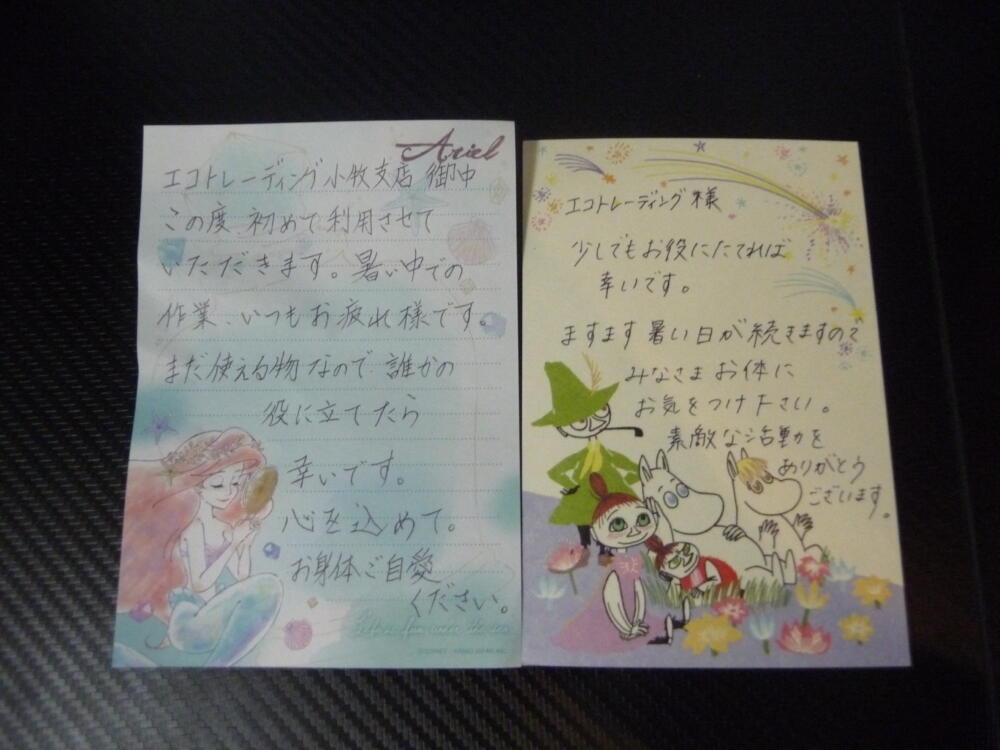 Ariel
エコトレーディング小牧支店 御中
この度 初めて利用させて
いただきます。暑い中での
作業、いつもお疲れ様です。
まだ使える物なので 誰かの
役に立てたら
幸いです。
心を込めて。
お身体ご自愛
ください。
エコトレーディング様
少しでもお役にたてれば
幸いです。
ますます暑い日が続きますので
みなさま お体に
お気をつけ下さい。
素敵な活動を
ありがとう
ございます。